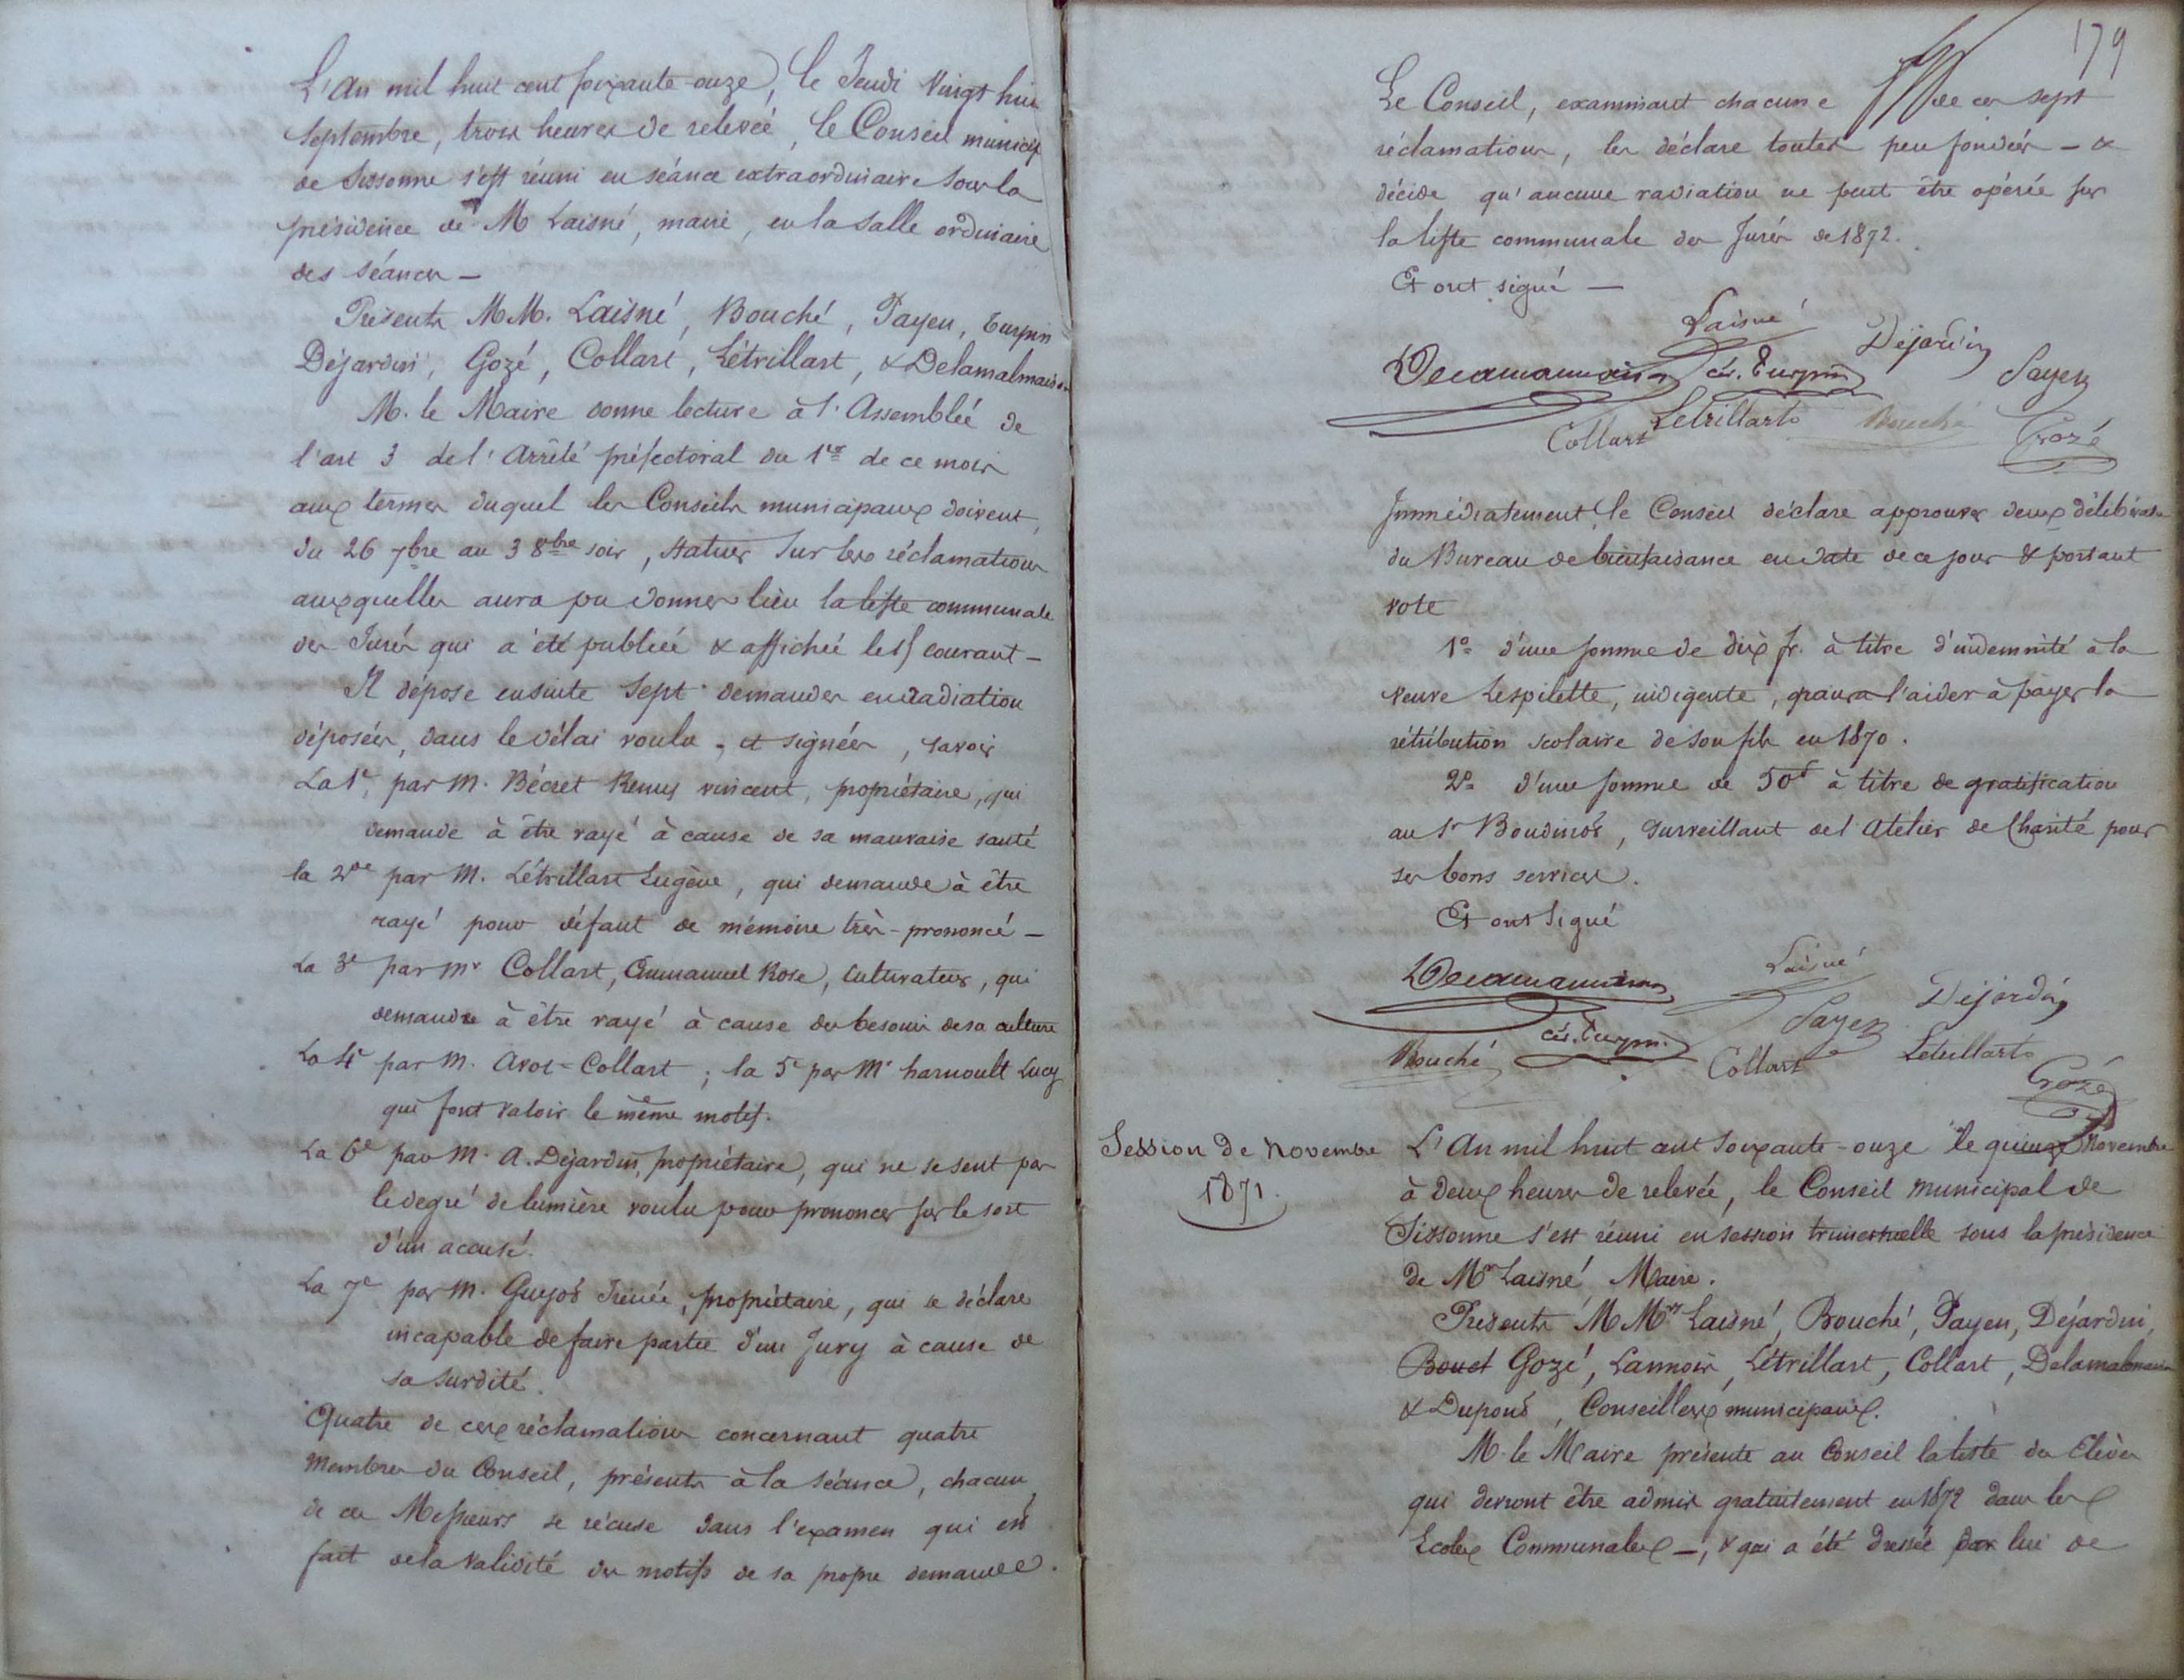 L'An mil huit cent soixante-onze, le Jeudi Vingt hui
Septembre, trois heures de relevée, le Conseil municip
de Sissonne s'est réuni en séance extraordinaire sous la
présidence de M Laisné, maire, en la salle ordinaire
des séances —
Présents MM. Laisné, Bouché, Payen, Turpin
Déjardin, Gozé, Collart, Létrillart, & Delamalmaison
M. le Maire donne lecture à l'Assemblée de
l'art 3 de l'Arrêté préfectoral du 1er de ce mois
aux termes duquel les Conseils municipaux doivent,
du 26 7bre au 3 8bre soir, statuer sur les réclamations
auxquelles aura pu donner lieu la liste communale
des Jurés qui a été publiée & affichée le courant —
Il dépose ensuite sept demandes en radiation
déposées, dans le délai voulu, et signées, savoir
La 1e, par M. Bécret Remy vincent, propriétaire, qui
demande à être rayé à cause de sa mauvaise santé
la 2de par M. Létrillart Eugène, qui demande à être
rayé pour défaut de mémoire très-prononcé —
La 3e par Mr Collart, Emmanuel Rose, cultivateur, qui
demande à être rayé à cause des besoins de sa culture
La 4e par M. Avot-Collart ; la 5e par Mr harnoult Lucy
qui font valoir le même motif.
La 6e par M. A. Déjardin, propriétaire, qui ne se sent pas
le degré de lumière voulu pour prononcer sur le sort
d'un accusé.
La 7e par M. Guyot Irénée, propriétaire, qui se déclare
incapable de faire partie d'un Jury à cause de
sa surdité.
Quatre de ces réclamations concernant quatre
Membres du Conseil, présents à la séance, chacun
de ces Messieurs se récuse dans l'examen qui est
fait de la validité des motifs de sa propre demande.
179
Le Conseil, examinant chacune de ces sept
réclamations, les déclare toutes peu fondées — &
décide qu'aucune radiation ne peut être opérée sur
la liste communale des Jurés de 1872.
Et ont signé —
Laisné Déjardin
Delamalmaison cés. Turpin Payen
Collart Létrillart Bouché Gozé
Immédiatement, le Conseil déclare approuver deux délibérations
du Bureau de bienfaisance en date de ce jour & portant
vote
1° d'une somme de dix fr. à titre d'indemnité à la
veuve Lespilette, indigente, l'aider à payer la
rétribution scolaire de son fils en 1870.
2° d'une somme de 50f à titre de gratification
au Sr Boudinot, surveillant de l'Atelier de Charité pour
ses bons services.
Et ont signé
Delamalmaison Laisné Déjardin
cés. Turpin Payen
Bouché Collart Létrillart
Gozé
Session de Novembre
1871.
L'An mil huit cent soixante-onze le quinze Novembre
à deux heures de relevée, le Conseil municipal de
Sissonne s'est réuni en session trimestrielle sous la présidence
de Mr Laisné, Maire.
Présents MMrs Laisné, Bouché, Payen, Déjardin,
Bouet Gozé, Lannois, Létrillart, Collart, Delamalmaison
& Dupont, Conseillers municipaux.
M. le Maire présente au Conseil la liste des Elèves
qui devront être admis gratuitement en 1872 dans les
Ecoles Communales —, & qui a été dressée par lui de